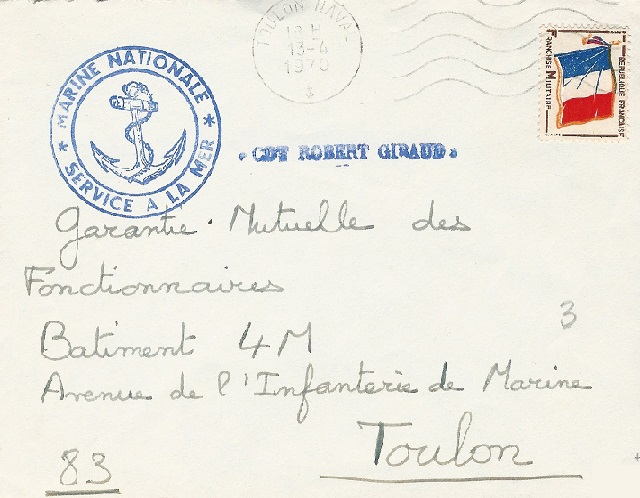 TOULON NAVAL
18 H
13-4
1970
FRANCHISE MILITAIRE
REPUBLIQUE FRANCAISE
* MARINE NATIONALE *
SERVICE A LA MER
" CDT ROBERT GIRAUD "
Garantie Mutuelle des
Fonctionnaires
3
Batiment 4M
Avenue de l'Infanterie de Marine
Toulon
83